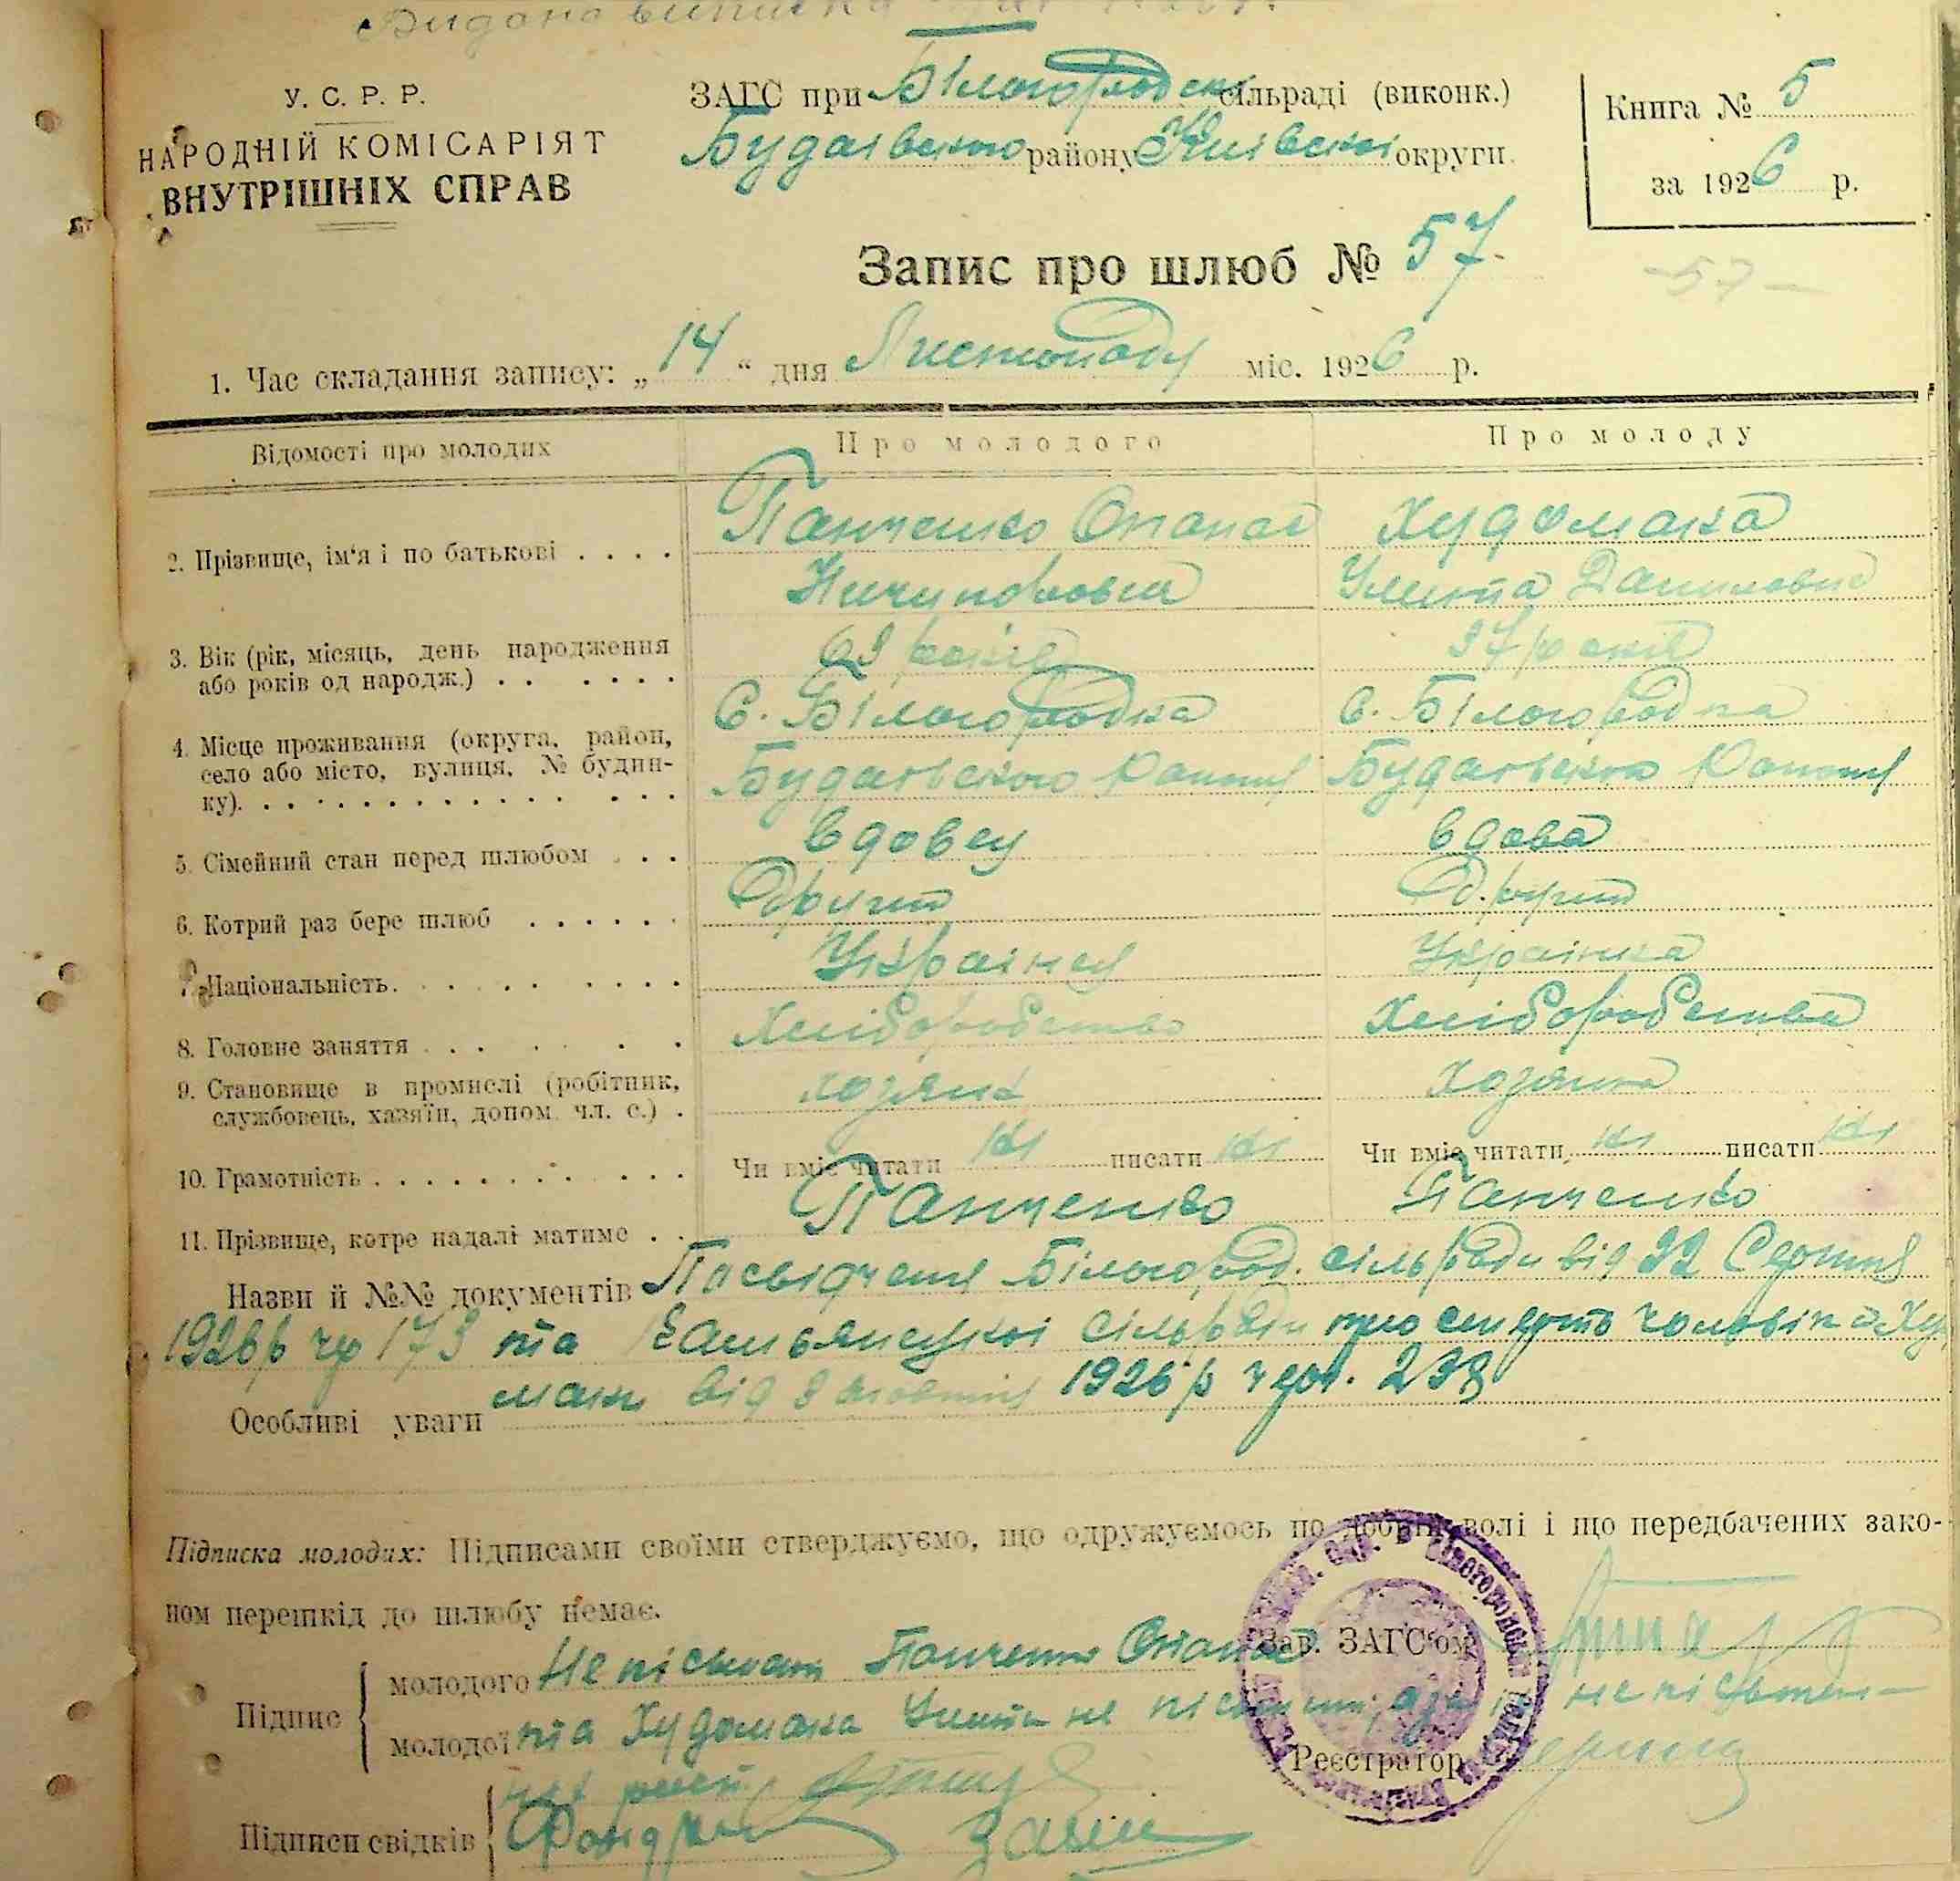 Видана виписка
У. С. Р. Р.
НАРОДНІЙ КОМІСАРІЯТ
ВНУТРІШНІХ СПРАВ
ЗАГС при Білогородськ сільраді (виконк.)
Будаівського району Київської округи
Книга № 5
за 1926 р.
Запис про шлюб № 57.
- 57 -
1. Час складання запису: „ 14 “ дня Листопаду міс. 1926 р.
Відомості про молодих
Про молодого
Про молоду
2. Прізвище, ім'я і по батькові . . . .
Панченко Опанас
Ничипорович
Худомака
Улита Даниловна
3. Вік (рік, місяць, день народження
або років од народж.) . . . . . .
років
37 років
4. Місце проживання (округа, район,
село або місто, вулиця, № будин-
ку). . . . . . . . . . . . . . . .
С. Білогородка
Будаівського Району
С. Білогородка
Будаівського Району
5. Сімейний стан перед шлюбом . . .
вдовец
вдова
6. Котрий раз бере шлюб . . . . . .
Другий
Другий
7. Національність. . . . . . . . .
Українец
Українка
8. Головне заняття . . . . . .
Хліборобство
Хліборобства
9. Становище в промислі (робітник,
службовець, хазяїн, допом. чл. с.) .
хозяин
хозяйка
10. Грамотність . . . . . . . . . . . .
Чи вміє читати ні писати ні
Чи вміє читати ні писати ні
11. Прізвище, котре надалі матиме . .
Панченко
Панченко
Назви й №№ документів Посвідченя Білогород. сільради від 22 Серпня
1926 р чр 173 та сільради про смерть чоловіка Худо
Особливі уваги маки від жовтня 1926 р
Підписка молодих: Підписами своїми стверджуємо, що одружуємось по добрій волі і що передбачених зако-
ном перешкід до шлюбу немає.
Підпис
молодого Не písьмен Панченко Опанас
молодої та Худомака Улита не
Зав. ЗАГС'ом
Реєстратор
Підписи свідків